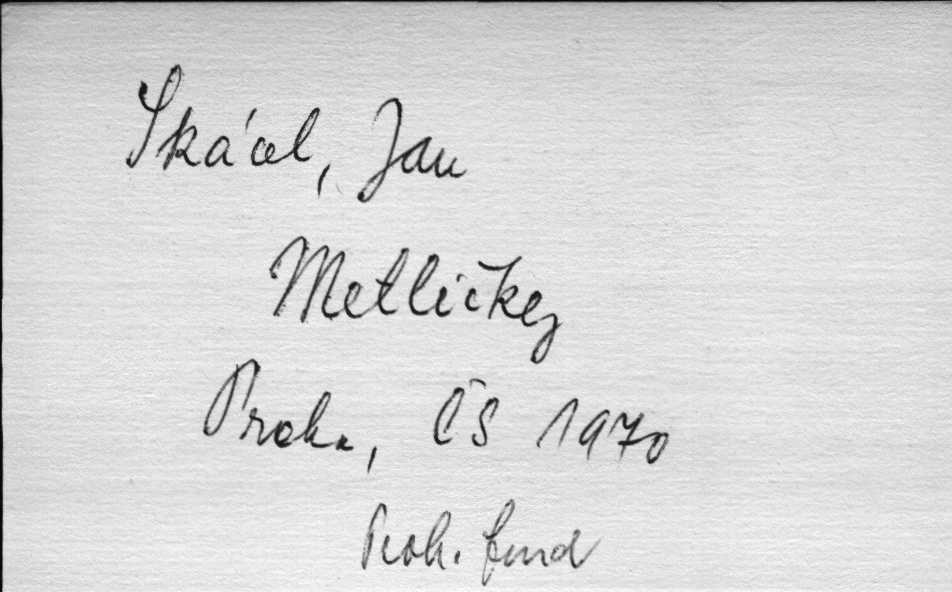 Skácel, Jan
Metličky
Praha, ČS 1970
Proh. fond